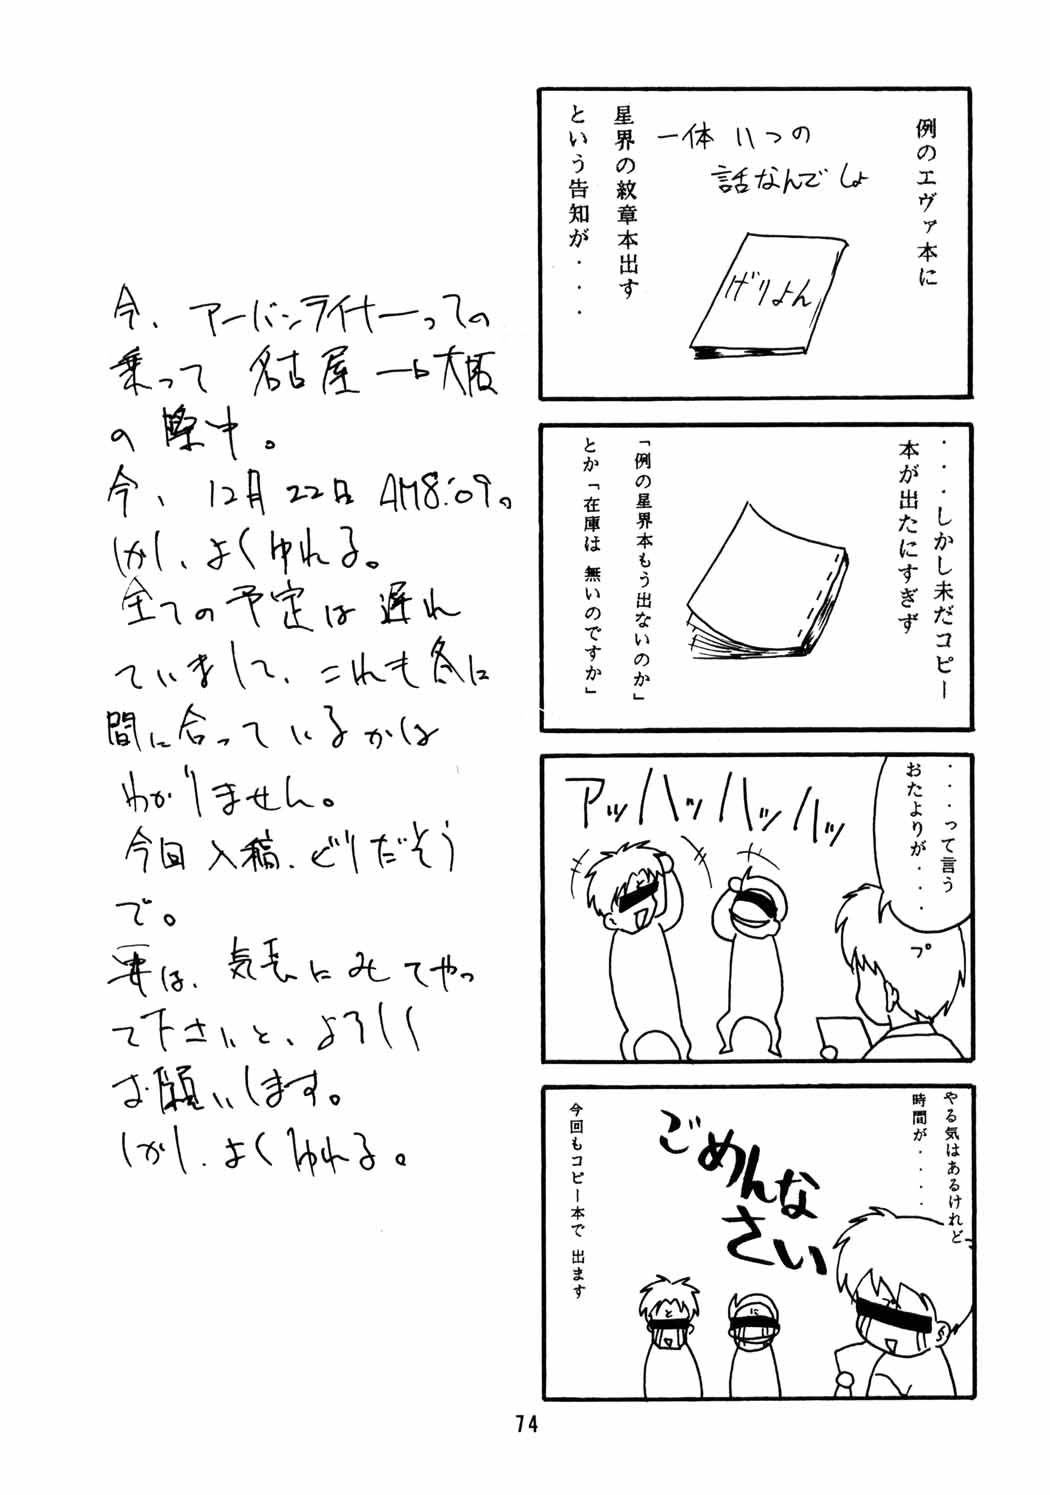 例のエヴァ本に
一体いつの
話なんでしょ
げりよん
星界の紋章本出す
という告知が・・・・
・・・しかし未だコピー
本が出たにすぎず
「例の星界本もう出ないのか」
とか「在庫は無いのですか」
・・・って言う
おたよりが・・・・
プ
アッハッハッハッ
と
やる気はあるけれど
時間が・・・・・
ごめんな
さい
プ
と
に
今回もコピー本で出ます
今、アーバンライナーっての
乗って名古屋→大阪
の際中。
今、12月22日AM8:09。
しかし、よくゆれる。
全ての予定は遅れ
ていまして、これも冬に
間に合っているかは
わかりません。
今回入稿、どりだそう
で。
要は、気長にみてやっ
て下さいと、よろしく
お願いします。
しかし、よくゆれる。
74